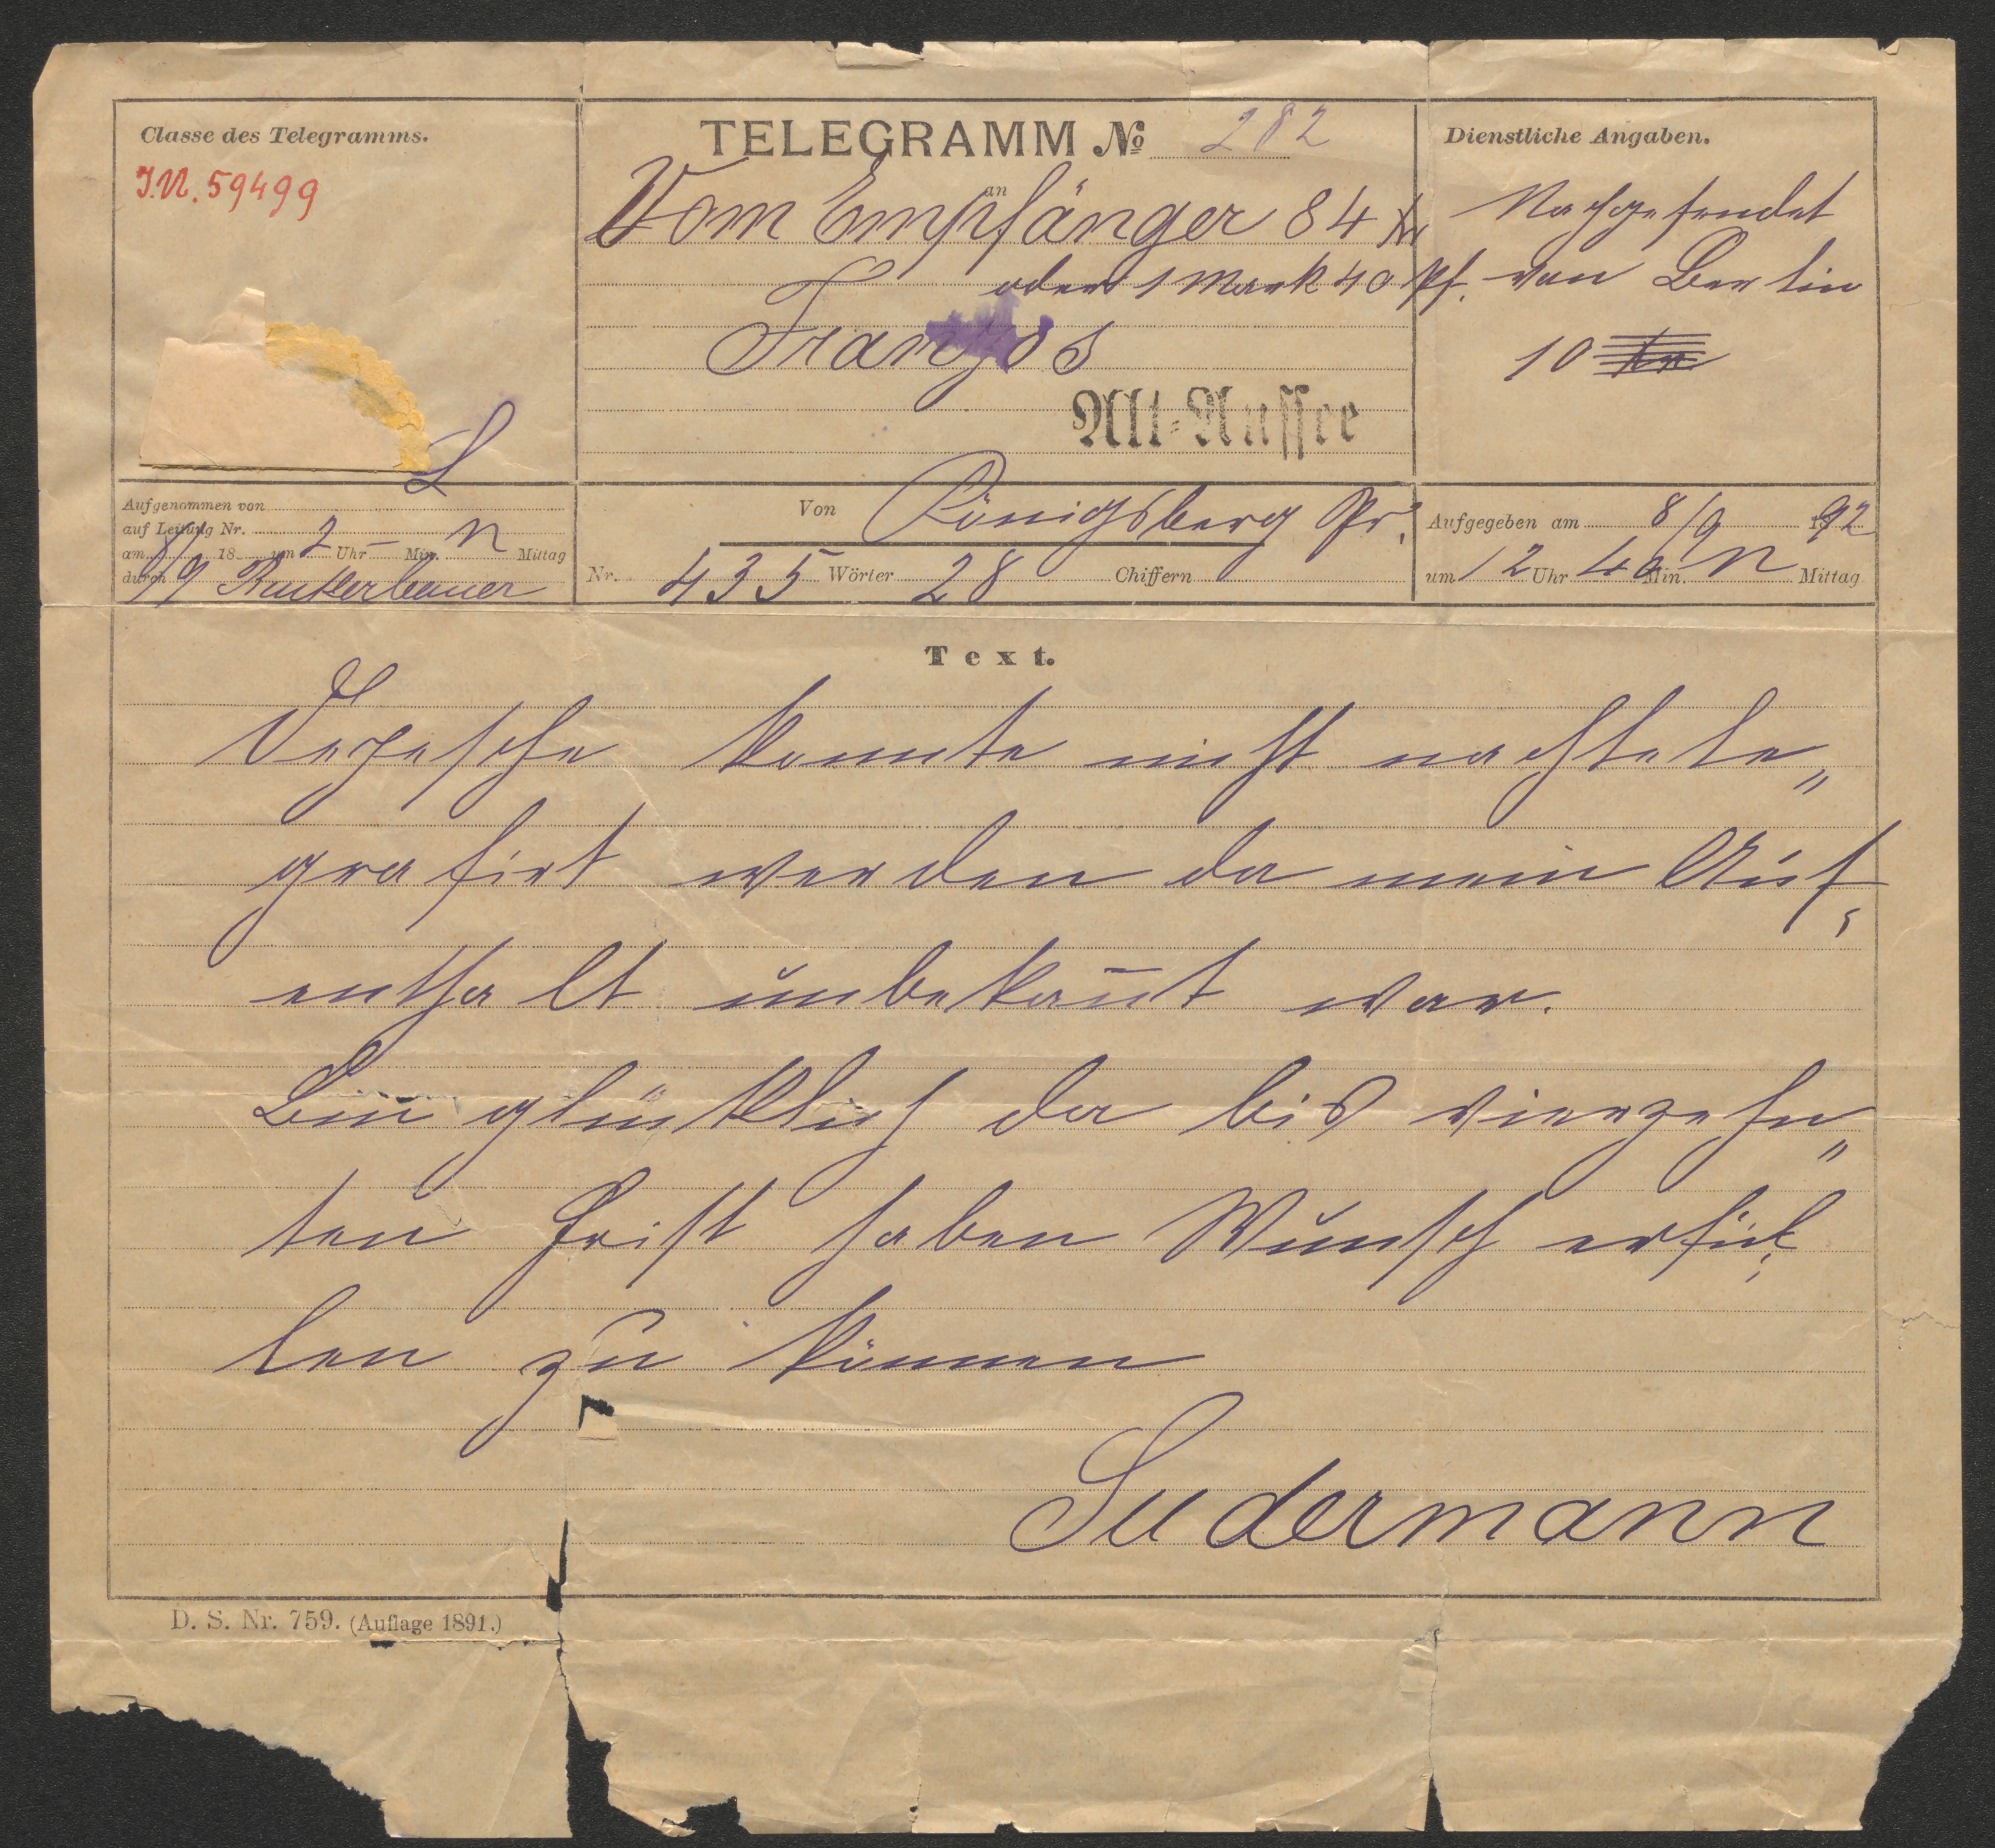 Classe des Telegramms.
J.N. 59499
TELEGRAMM № 282
an
Vom Empfänger 84 Kr
oder 1 Mark 40 Pf.
Franzos
Alt-Aussee
Dienstliche Angaben.
Nachgesendet
von Berlin
10
Aufgenommen von
auf Leitung Nr.
am 8/9 18 um 2 Uhr – Min. N Mittag
durch
Von Königsberg Pr.
Nr. 435 Wörter 28 Chiffern
Aufgegeben am 8/9 1892
um 12 Uhr 40 Min. N Mittag
Text.
Depesche konnte nicht nachtele„
grafirt werden da mein Auf„
enthalt unbekañt war.
Bin glücklich da bis vierzehn„
ten Frist haben Wunsch erfül„
len zu können
Sudermann
D. S. Nr. 759. (Auflage 1891.)